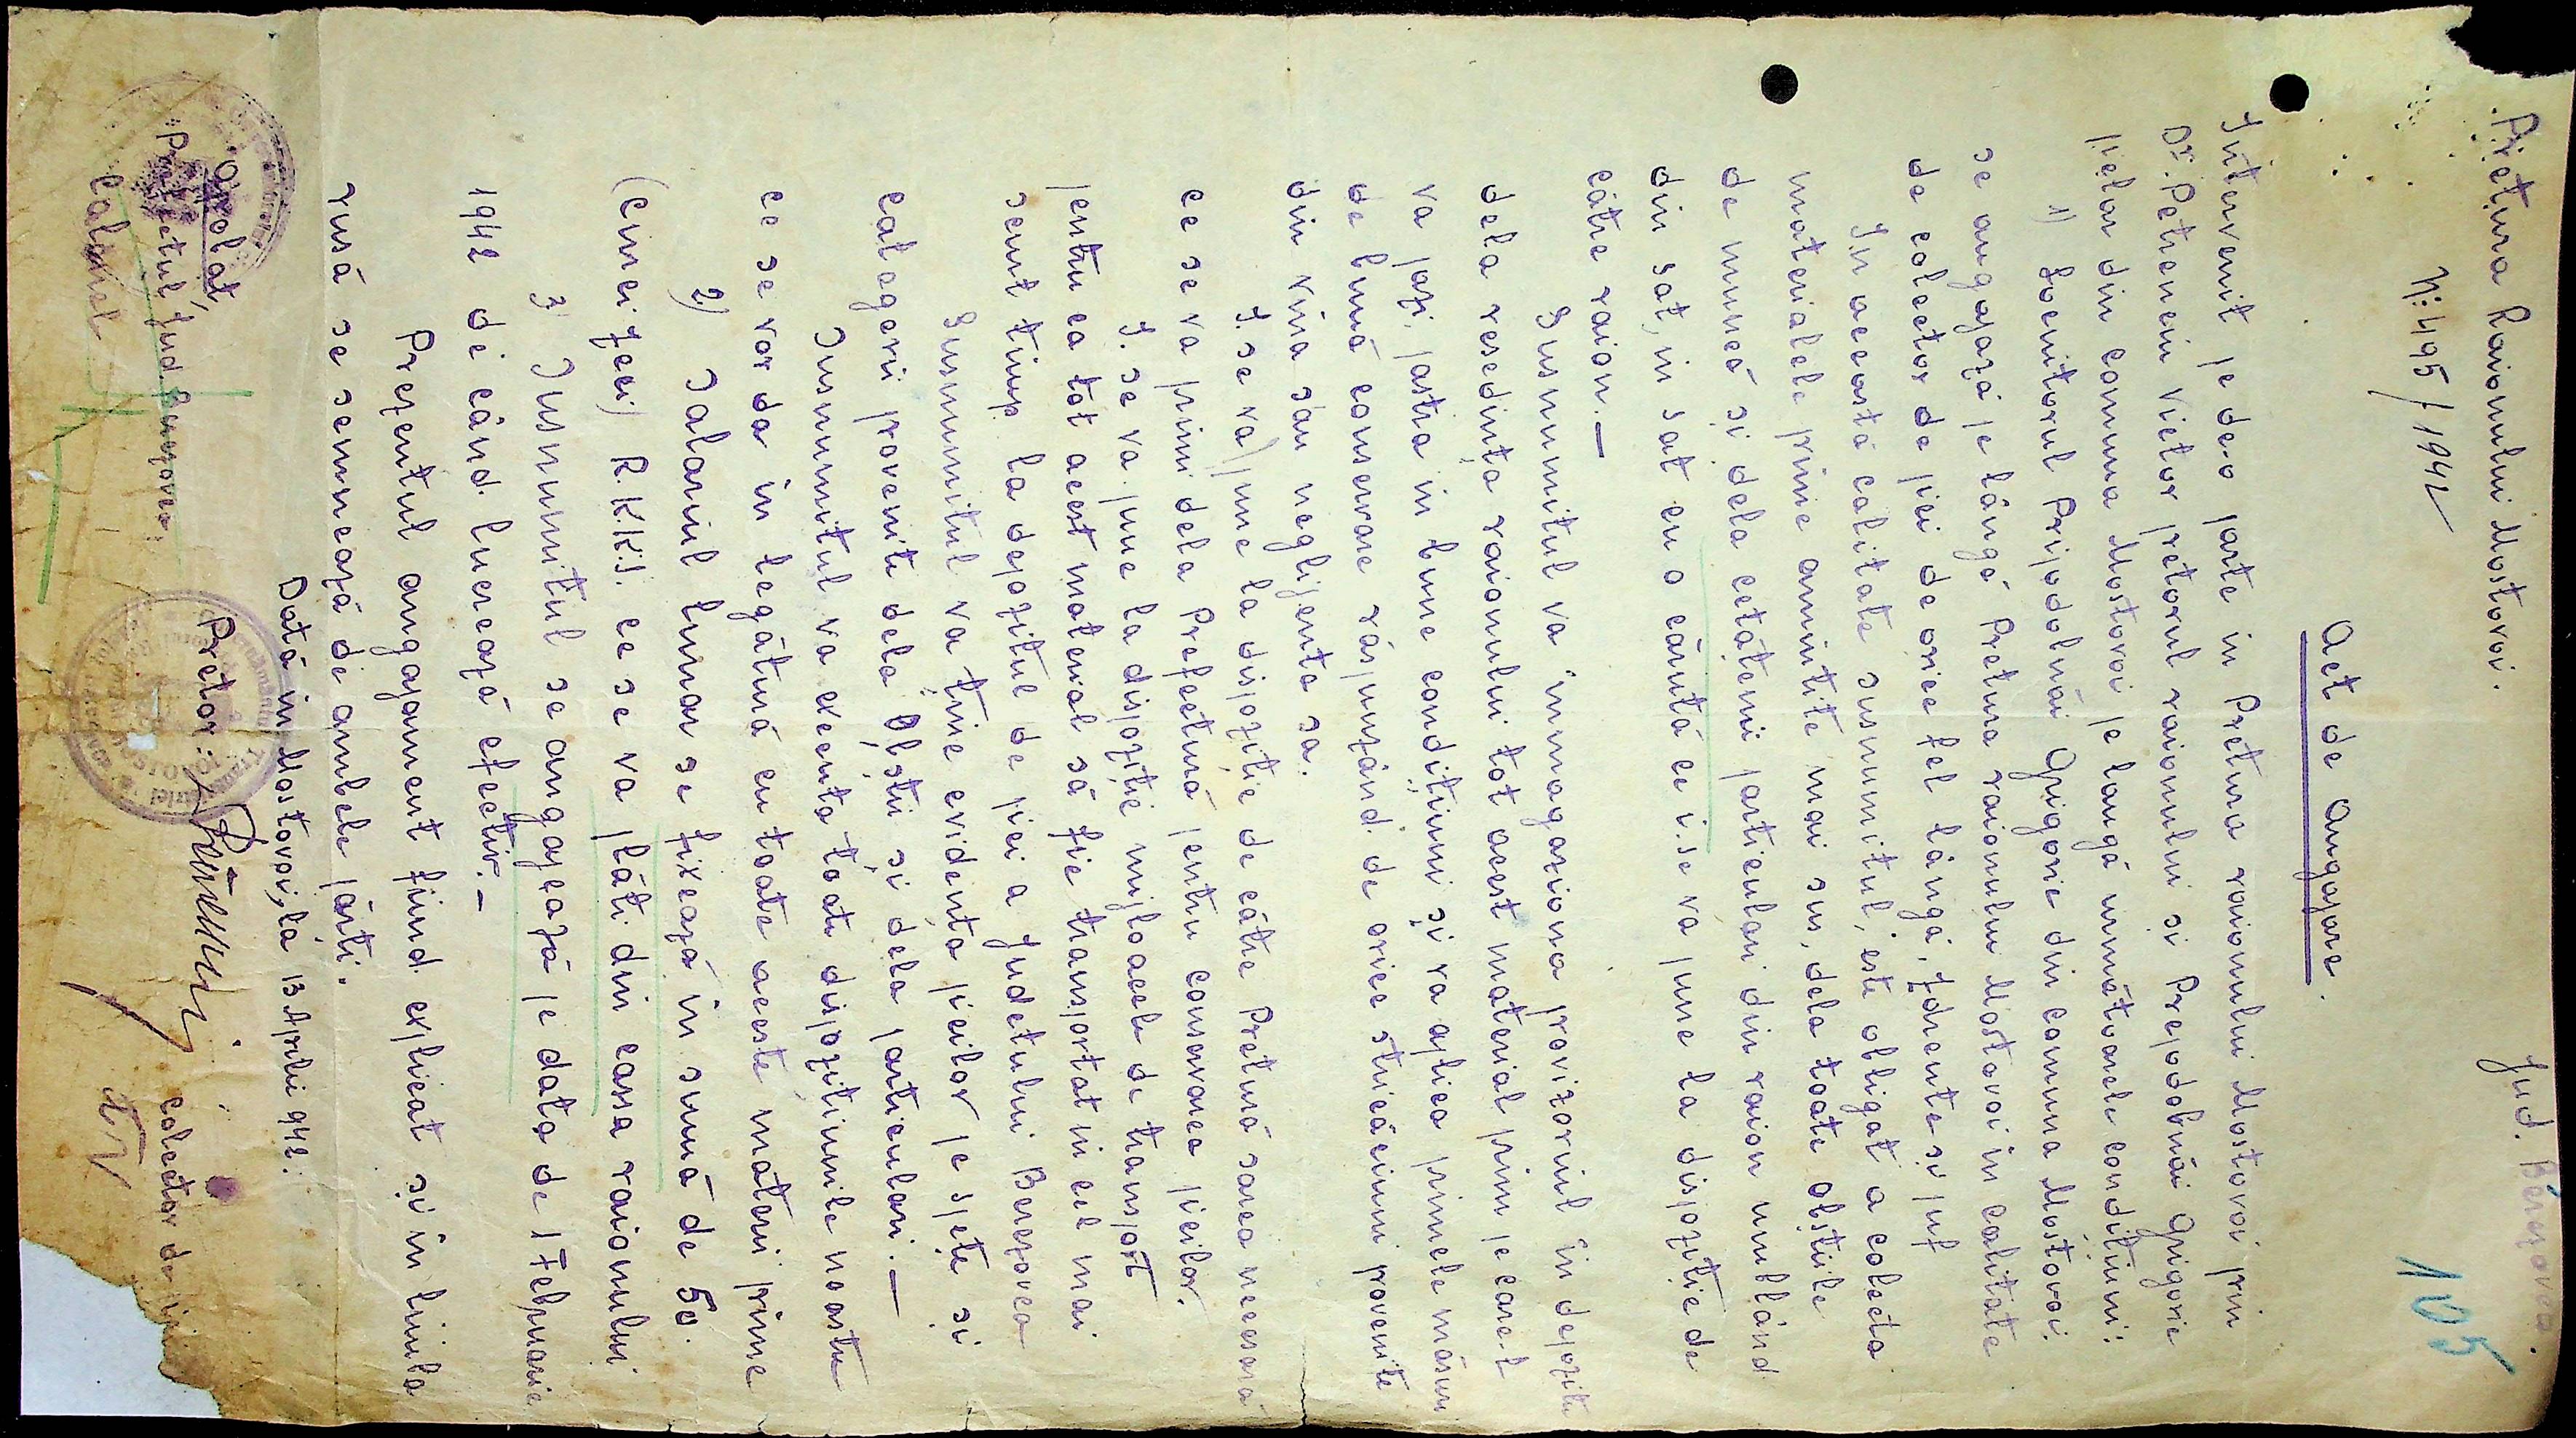 Pretura Raionului Mostovoi.
Jud. Berezovca.
N: 495/1942
105
Act de angajare.
Intervenit pe de-o parte in Pretura raionului Mostovoi prin
Dr. Petreneiu Victor pretorul raionului și Prepodobnâi Grigorie
pielar din comuna Mostovoi pe langă următoarele condițiuni:
1) Locuitorul Pripodolnâi Grigorie din comuna Mostovoi
se angajază pe lângă Pretura raionului Mostovoi in calitate
de colector de piei de orice fel lângă, zdrențe și puf
In aceastá calitate susnumitul, este obligat a colecta
materialele prime amintite mai sus, dela toate obștiile
de muncă și dela cetățenii particulari din raion umblând
din sat, in sat cu o căruță ce i.se va pune la dispoziție de
cătie raion.—
Susnumitul va inmagaziona provizoriul in depozite
dela resedința raionului tot acest material prim pe care-l
va pazi, pastra in bune condițiuni și va aplica primele măsuri
de bună conservare răspunzând de orice stricăciuni provenite
din vina sau neglijența sa.
I. se va pune la dispoziție de cătie Pretură sarea necesară
ce se va primi dela Prefectură pentru conservarea pieilor.
I. se va pune la dispoziție mijloacele de transport
pentru ca tot acest material să fie transportat in cel mai
scurt timp la depozitul de piei a Judetului Berezovca
Susnumitul va ține evidența pieilor pe spețe și
categorii provenite dela Obștii și dela particulari.—
Susnumitul va executa toate dispozițiunile noastre
ce se vor da in legătură cu toate aceste materii prime
2) Salariul lunar se fixează in sumă de 50.
(cincizeci) R.K.K.S. ce se va plăti din cassa raionului
3) Susnumitul se angajează pe data de 1 Februarie
1942 de când lucrează efectiv.—
Prezentul angajament fiind explicat și in limba
rusă se semnează de ambele părți.
Dată in Mostovoi, la 13 Aprilie 942.
Pretor:
colector de
Aprobat,
Prefectul Jud. Berezovca,
Colonel